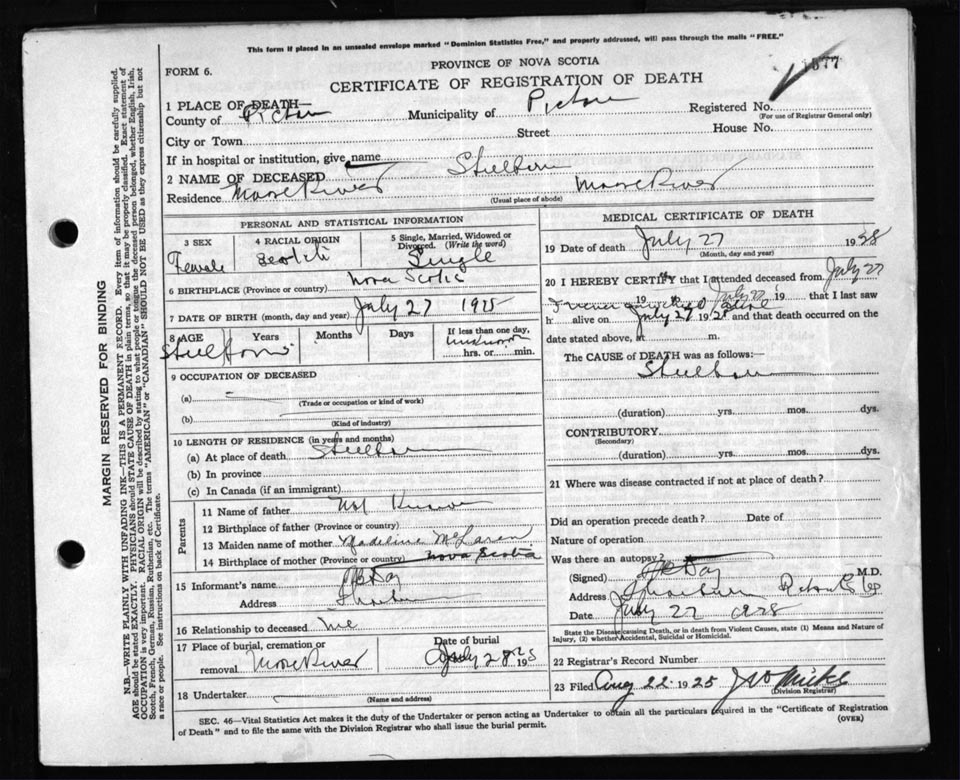 This form if placed in an unsealed envelope marked "Dominion Statistics Free," and properly addressed, will pass through the mails "FREE."
PROVINCE OF NOVA SCOTIA
FORM 6.
CERTIFICATE OF REGISTRATION OF DEATH
577
1 PLACE OF DEATH—
County of Pictou Municipality of Pictou Registered No.
(For use of Registrar General only)
City or Town Street House No.
If in hospital or institution, give name
2 NAME OF DECEASED Stillborn
Residence Moose River Moose River
(Usual place of abode)
PERSONAL AND STATISTICAL INFORMATION
3 SEX
Female
4 RACIAL ORIGIN
Scotch
5 Single, Married, Widowed or Divorced. (Write the word)
Single
6 BIRTHPLACE (Province or country) Nova Scotia
7 DATE OF BIRTH (month, day and year) July 27
8 AGE Years Months Days If less than one day,
Stillborn hrs. or min.
9 OCCUPATION OF DECEASED
(a)
(Trade or occupation or kind of work)
(b)
(Kind of industry)
10 LENGTH OF RESIDENCE (in years and months)
(a) At place of death Stillborn
(b) In province
(c) In Canada (if an immigrant)
Parents
11 Name of father Not Known
12 Birthplace of father (Province or country)
13 Maiden name of mother Madeline McLaren
14 Birthplace of mother (Province or country) Nova Scotia
15 Informant's name Day
Address Thorburn
16 Relationship to deceased
17 Place of burial, cremation or removal Moose River
Date of burial July 28
18 Undertaker
(Name and address)
MEDICAL CERTIFICATE OF DEATH
19 Date of death July 27 19
(Month, day and year)
20 I HEREBY CERTIFY that I attended deceased from July 27
19 19 that I last saw
h alive on July 27 19 and that death occurred on the
date stated above, at m.
The CAUSE of DEATH was as follows:—
Stillborn
(duration) yrs. mos. dys.
CONTRIBUTORY
(Secondary)
(duration) yrs. mos. dys.
21 Where was disease contracted if not at place of death?
Did an operation precede death? Date of
Nature of operation
Was there an autopsy?
(Signed) Day M.D.
Address Thorburn
Date July 27
State the Disease causing Death, or in death from Violent Causes, state (1) Means and Nature of Injury, (2) whether Accidental, Suicidal or Homicidal.
22 Registrar's Record Number
23 Filed Aug 22 1925
(Division Registrar)
SEC. 46—Vital Statistics Act makes it the duty of the Undertaker or person acting as Undertaker to obtain all the particulars required in the "Certificate of Registration
of Death" and to file the same with the Division Registrar who shall issue the burial permit. (OVER)
MARGIN RESERVED FOR BINDING
N.B.—WRITE PLAINLY WITH UNFADING INK—THIS IS A PERMANENT RECORD. Every item of information should be carefully supplied.
AGE should be stated EXACTLY. PHYSICIANS should STATE CAUSE OF DEATH in plain terms, so that it may be properly classified. Exact statement of
OCCUPATION is very important. RACIAL ORIGIN will be described by stating to what people or tongue the deceased person belonged, whether English, Irish,
Scotch, French, German, Russian, Ruthenian, etc. The terms "AMERICAN" or "CANADIAN" SHOULD NOT BE USED as they express citizenship but not
a race or people. See instructions on back of Certificate.